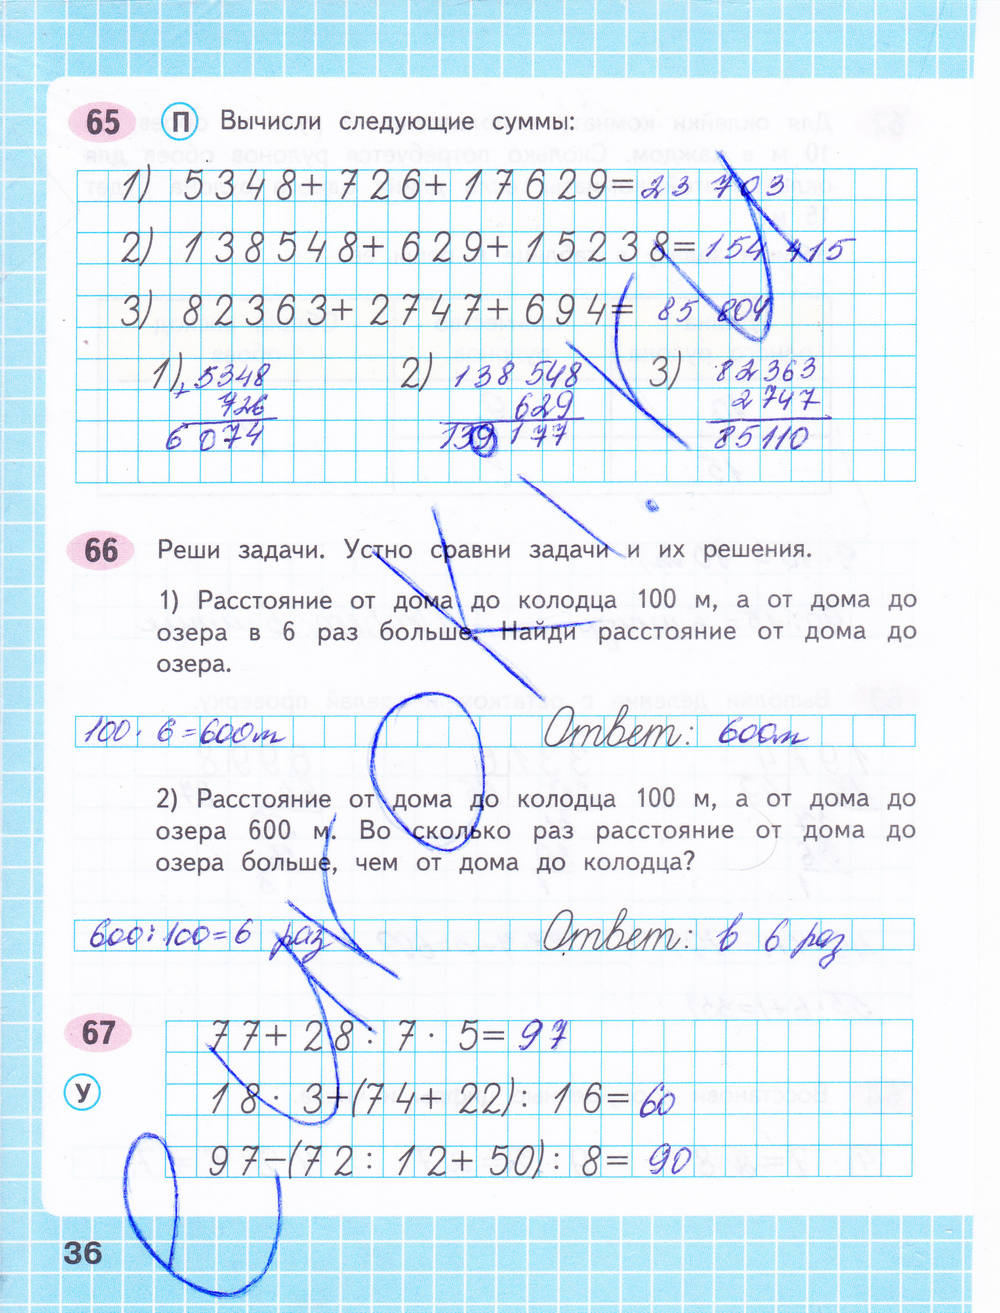 65 П Вычисли следующие суммы:
1) 5348+726+17629=23 703
2) 138548+629+15238=154 415
3) 82363+2747+694=85 804
1) + 5348 2) 138 548 3) 82363
726 629 2747
6074 139 177 85110
66 Реши задачи. Устно сравни задачи и их решения.
1) Расстояние от дома до колодца 100 м, а от дома до
озера в 6 раз больше. Найди расстояние от дома до
озера.
100 · 6 = 600м Ответ: 600м
2) Расстояние от дома до колодца 100 м, а от дома до
озера 600 м. Во сколько раз расстояние от дома до
озера больше, чем от дома до колодца?
600:100=6 раз Ответ: в 6 раз
67 77+28:7·5=97
У 18·3+(74+22):16=60
97-(72:12+50):8=90
36